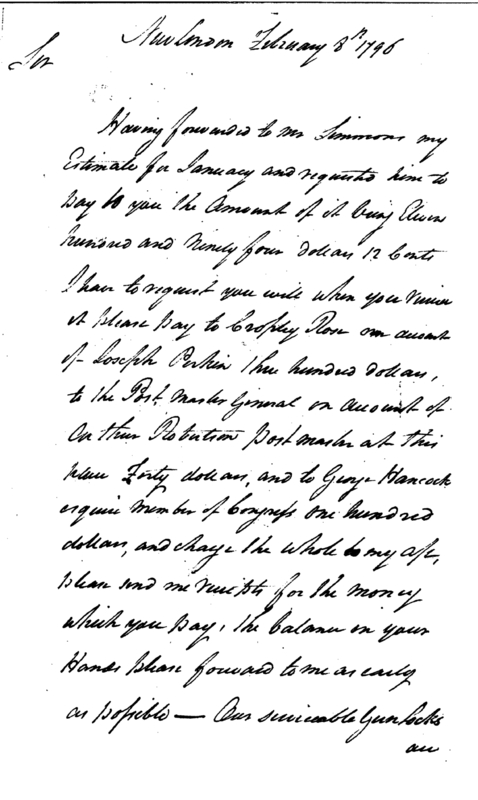 New London February 8th 1796
Sir
Having forwarded to Mr Simmons my
Estimate for January and requested him to
pay to you the Amount of it being Eleven
hundred and Ninety four dollars 12 Cents
I have to request you will when you receive
it please pay to Cropley Rose on account
of Joseph Perkin three hundred dollars,
to the Post Master General on Account of
Arthur Robertson postmaster at this
place Forty dollars, and to George Hancock
esquire Member of Congress One hundred
dollars, and charge the whole to my a/c,
please send me receipts for the money
which you pay, the balance in your
Hands please forward to me as early
as possible — Our serviceable Gun Locks
are